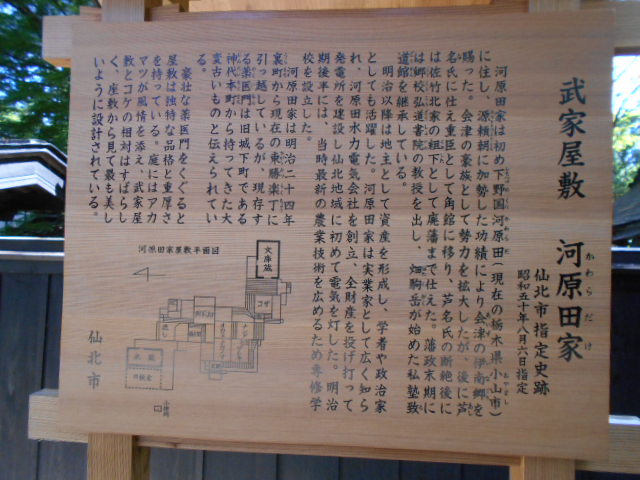 武家屋敷 河原田家
かわらだけ
仙北市指定史跡
昭和五十年八月六日指定
河原田家は初め下野国河原田(現在の栃木県小山市)
に住し、源頼朝に加勢した功績により会津の伊南郷を
賜った。会津の豪族として勢力を拡大したが、後に芦
名氏に仕え重臣として角館に移り、芦名氏の断絶後に
は佐竹北家の組下として廃藩まで仕えた。藩政末期に
は郷校弘道書院の教授を出し、畑駒岳が始めた私塾致
道館を継承している。
明治以降は地主として資産を形成し、学者や政治家
としても活躍した。河原田家は実業家として広く知ら
れ、河原田水力電気会社を創立、全財産を投げ打って
発電所を建設し仙北地域に初めて電気を灯した。明治
期後半には、当時最新の農業技術を広めるため専修学
校を設立した。
河原田家は明治二十四年
裏町から現在の東勝楽丁に
引っ越しているが、現存す
る薬医門は旧城下町である
神代本町から持ってきた大
変古いものと伝えられてい
る。
豪壮な薬医門をくぐると
屋敷は独特な品格と重厚さ
を持っている。庭にはアカ
マツが風情を添え、武家屋
敷とコケの相対はすばらし
く、座敷から見て最も美し
いように設計されている。
河原田家屋敷平面図
文庫蔵
仙北市